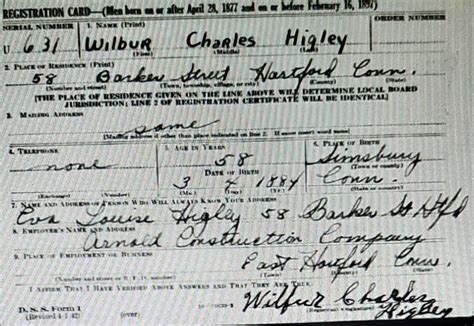 REGISTRATION CARD—(Men born on or after April 28, 1877 and on or before February 16, 1897)
SERIAL NUMBER 1. NAME (Print) ORDER NUMBER
U 631 Wilbur Charles Higley
(First) (Middle) (Last)
2. PLACE OF RESIDENCE (Print)
58 Barker Street Hartford Conn.
(Number and street) (Town, township, village, or city) (County) (State)
[THE PLACE OF RESIDENCE GIVEN ON THE LINE ABOVE WILL DETERMINE LOCAL BOARD
JURISDICTION; LINE 2 OF REGISTRATION CERTIFICATE WILL BE IDENTICAL]
3. MAILING ADDRESS
same
[Mailing address if other than place indicated on line 2. If same insert word same]
4. TELEPHONE 5. AGE IN YEARS 6. PLACE OF BIRTH
none 58 Simsbury
DATE OF BIRTH (Town or county)
3 1884 Conn.
(Exchange) (Number) (Mo.) (Day) (Yr.) (State or country)
7. NAME AND ADDRESS OF PERSON WHO WILL ALWAYS KNOW YOUR ADDRESS
Eva Louise Higley 58 Barker St Htfd
8. EMPLOYER'S NAME AND ADDRESS
Arnold Construction Company
9. PLACE OF EMPLOYMENT OR BUSINESS
East Hartford Conn.
(Number and street or R. F. D. number) (Town) (County) (State)
I AFFIRM THAT I HAVE VERIFIED ABOVE ANSWERS AND THAT THEY ARE TRUE.
D. S. S. Form 1
(Revised 4-1-42) (over)
Wilbur Charles
Higley